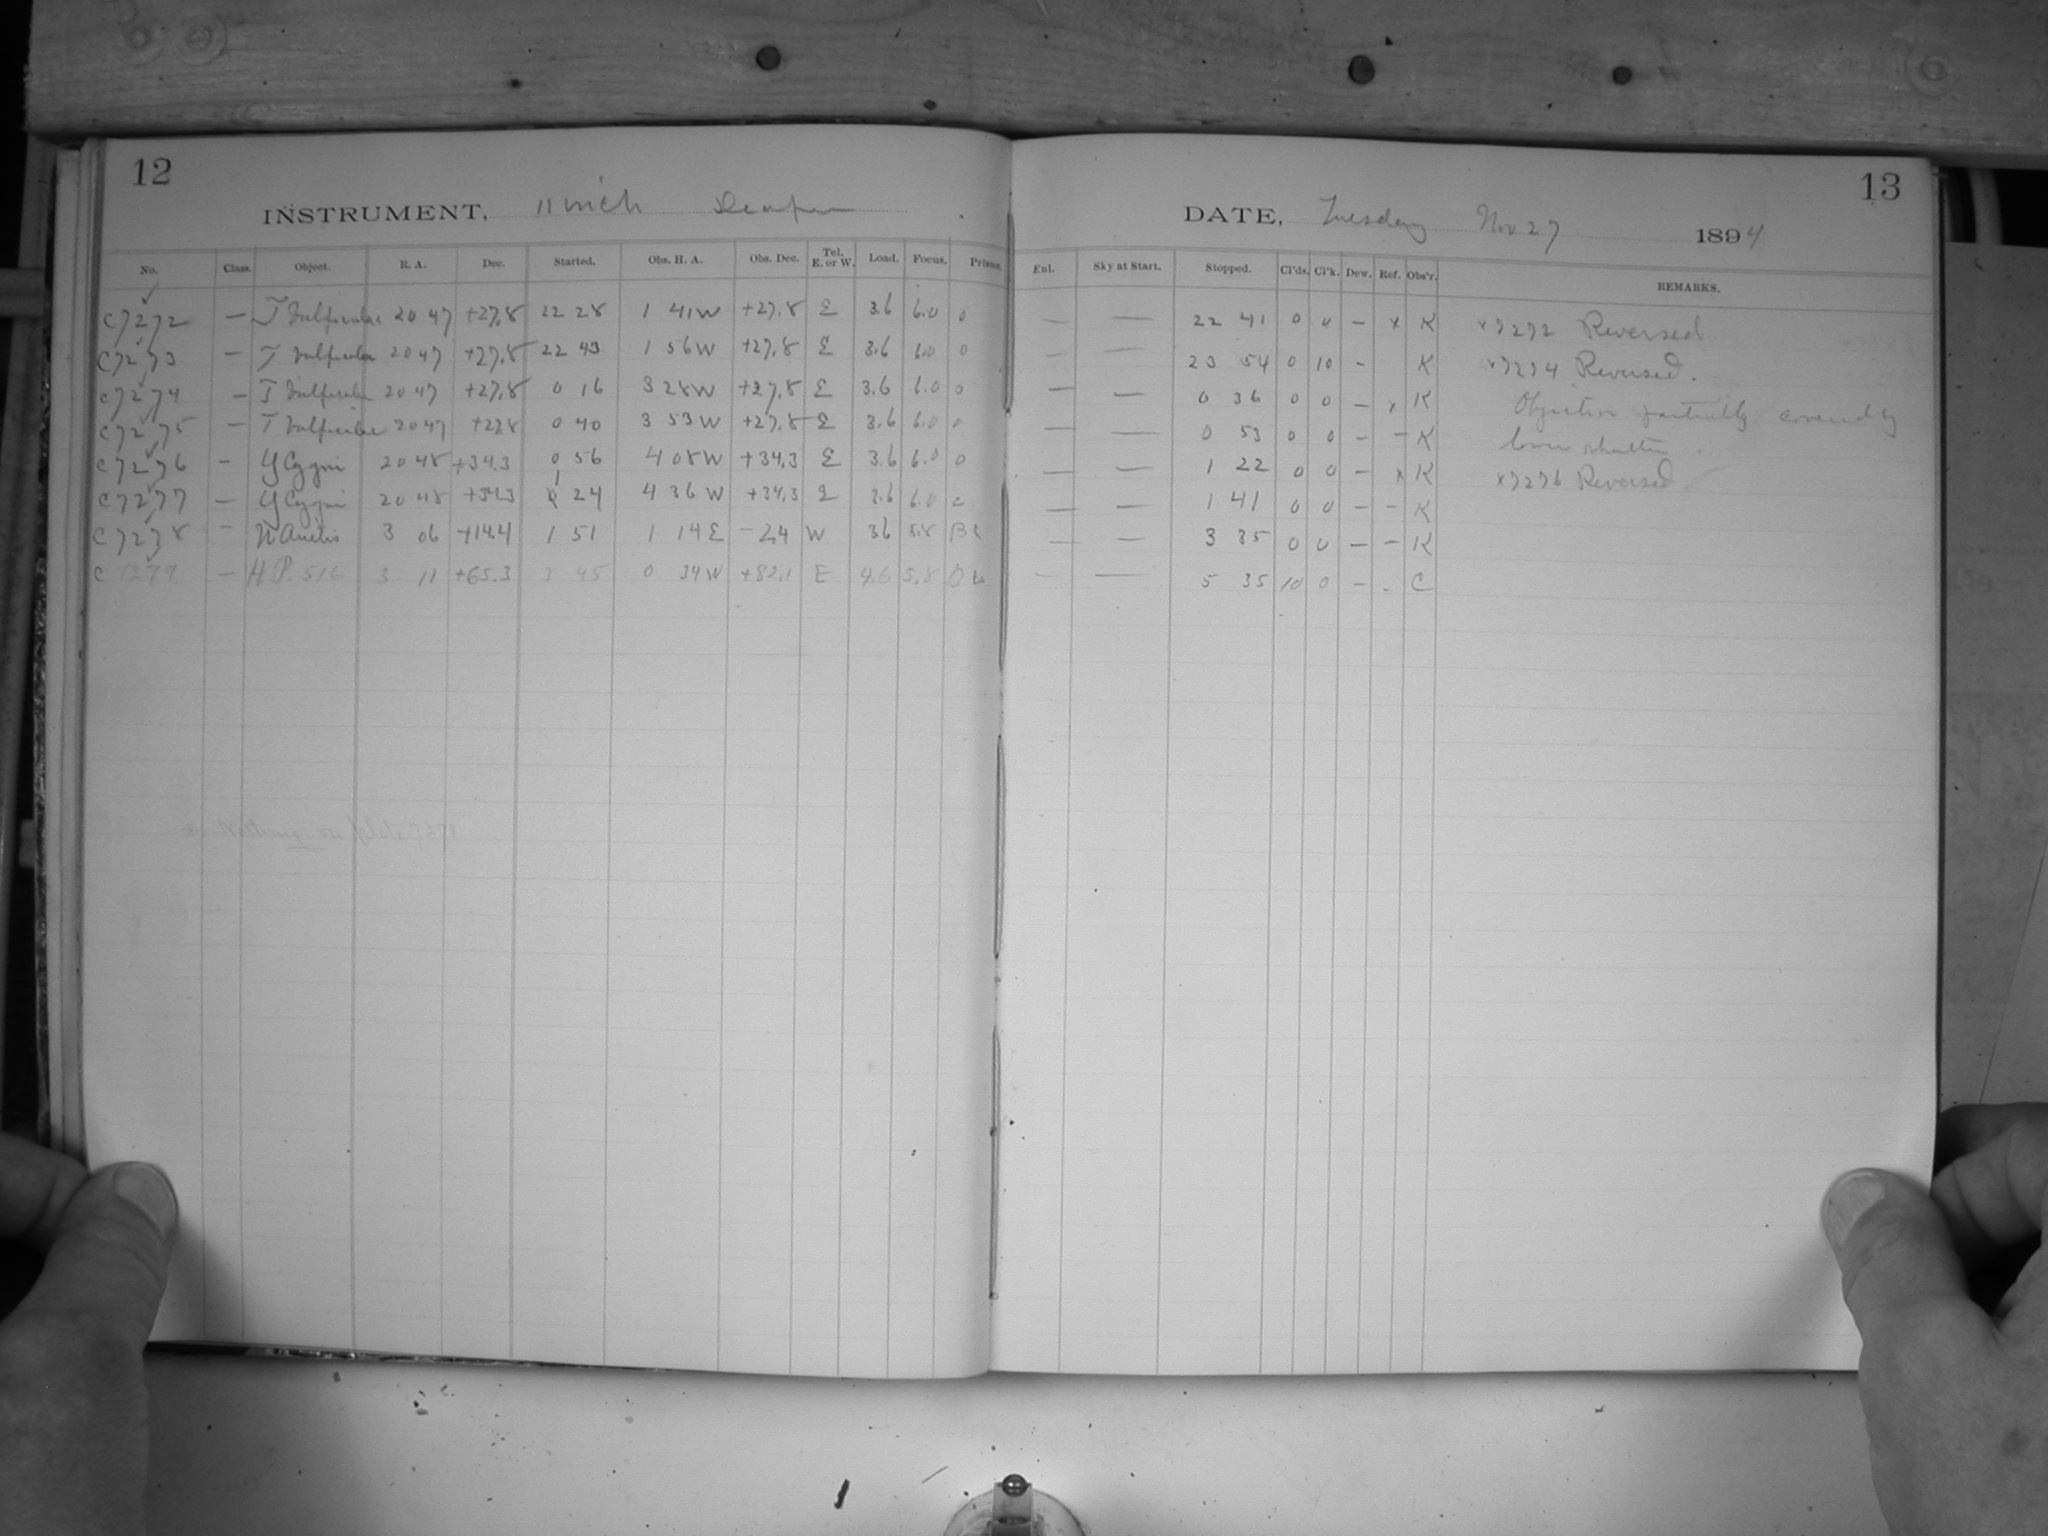 12
INSTRUMENT, 11 inch Draper
No. Class. Object. R. A. Dec. Started. Obs. H. A. Obs. Dec. Tel. E. or W. Load. Focus. Prisms.
C7272 — T Vulpeculae 20 47 +27.8 22 28 1 41W +27.8 E 3.6 6.0 0
C7273 — T Vulpeculae 20 47 +27.8 22 43 1 56W +27.8 E 3.6 6.0 0
C7274 — T Vulpeculae 20 47 +27.8 0 16 3 28W +27.8 E 3.6 6.0 0
C7275 — T Vulpeculae 20 47 +27.8 0 40 3 53W +27.8 E 3.6 6.0 0
C7276 — Y Cygni 20 48 +34.3 0 56 4 08W +34.3 E 3.6 6.0 0
C7277 — Y Cygni 20 48 +34.3 1 24 4 36W +34.3 E 3.6 6.0 0
C7278 — U Arietis 3 06 +14.4 1 51 1 14E -2.4 W 3.6 5.8
C7279 — H.P. 516 3 11 +65.3 3 45 0 34W +82.1 E 4.6 5.8
Nothing on plate 7271
13
DATE, Tuesday Nov 27 1894
Enl. Sky at Start. Stopped. Cl'ds. Cl'k. Dew. Ref. Obs'r. REMARKS.
— — 22 41 0 0 — x K x7272 Reversed
— — 23 54 0 10 - K x7274 Reversed.
— — 0 36 0 0 — x K Objective partially covered by
— — 0 53 0 0 — — K lower shutter.
— — 1 22 0 0 — x K x7276 Reversed.
— — 1 41 0 0 — — K
— — 3 35 0 0 — — K
— — 5 35 10 0 — - C